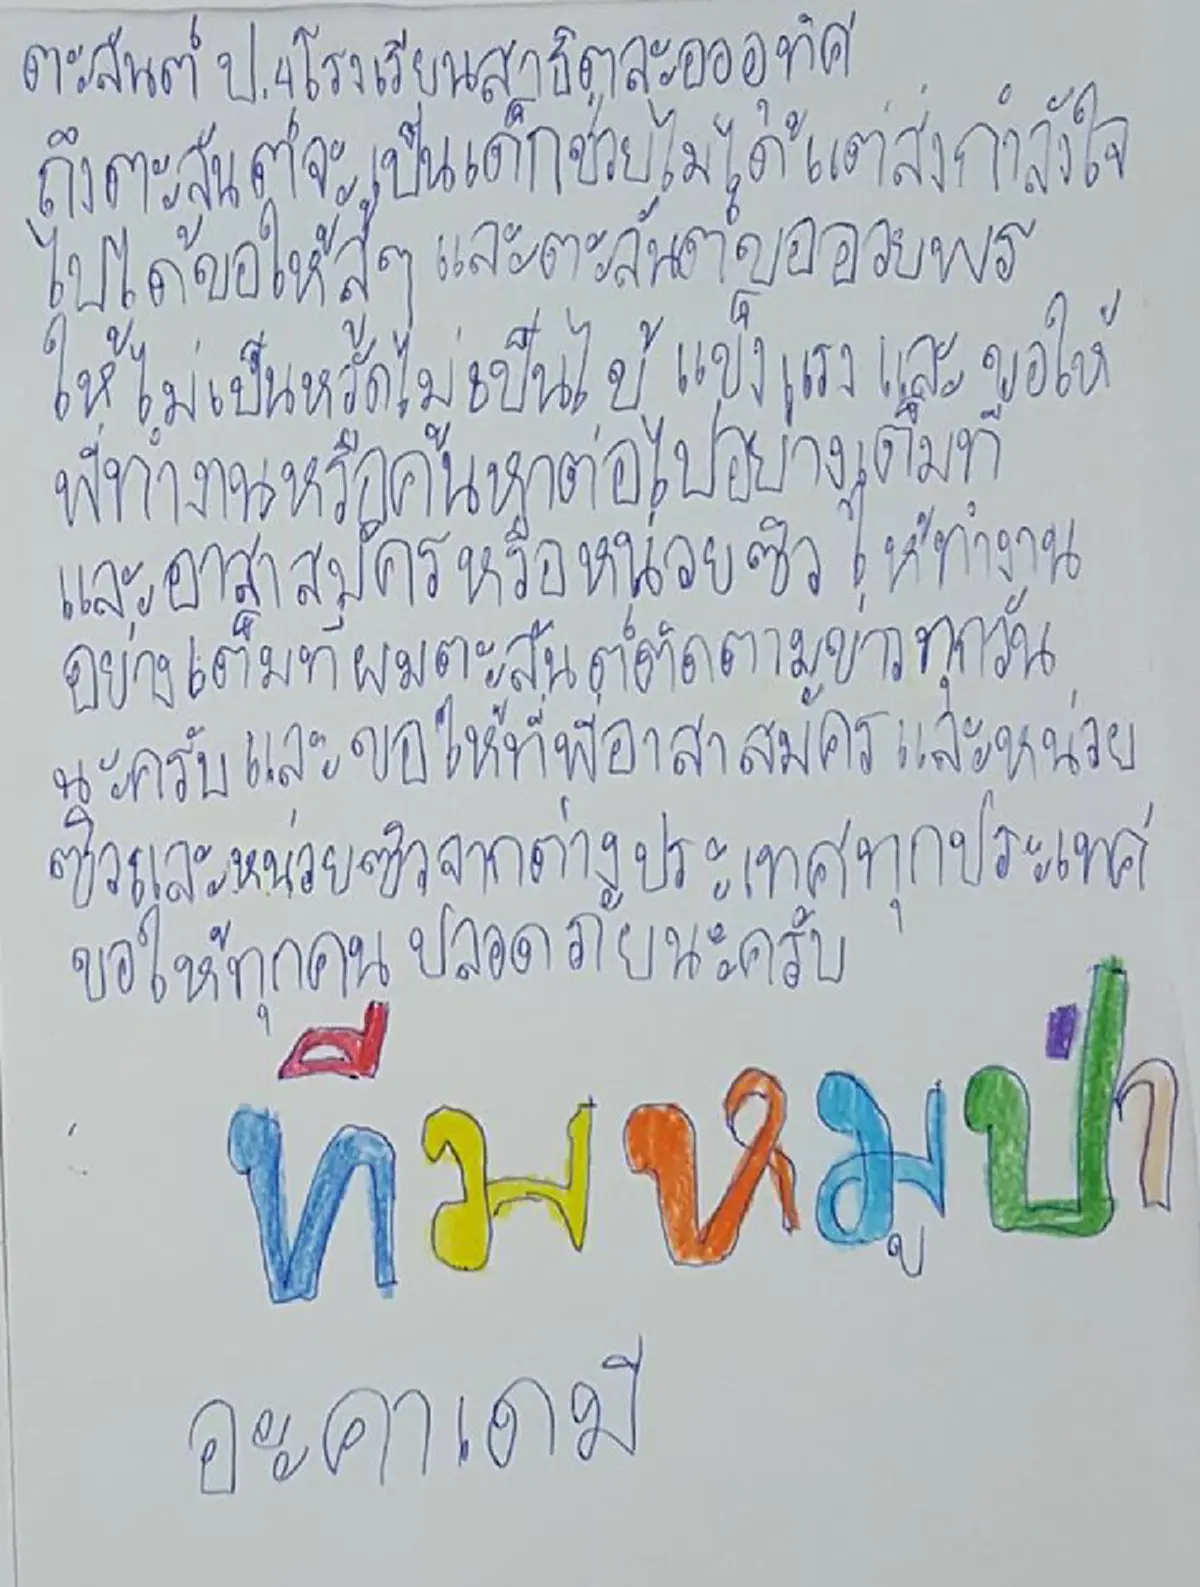 ตะสันต์ ป.4โรงเรียนสาธิตละอออุทิศ
ถึงตะสันต์จะเป็นเด็กช่วยไม่ได้แต่ส่งกำลังใจ
ไปได้ขอให้สู้ๆ และตะสันต์ขออวยพร
ให้ไม่เป็นหวัดไม่เป็นไข้ แข็งแรง และ ขอให้
พี่ทำงานหรือค้นหาต่อไปอย่างเต็มที่
และอาสาสมัครหรือหน่วยซิว ให้ทำงาน
อย่างเต็มที่ผมตะสันต์ติดตามข่าวทุกวัน
นะครับ และขอให้ที่พี่อาสาสมัครและหน่วย
ซิวและหน่วยซิวจากต่างประเทศทุกประเทศ
ขอให้ทุกคน ปลอดภัยนะครับ
ทีมหมูป่า
อะคาเดมี